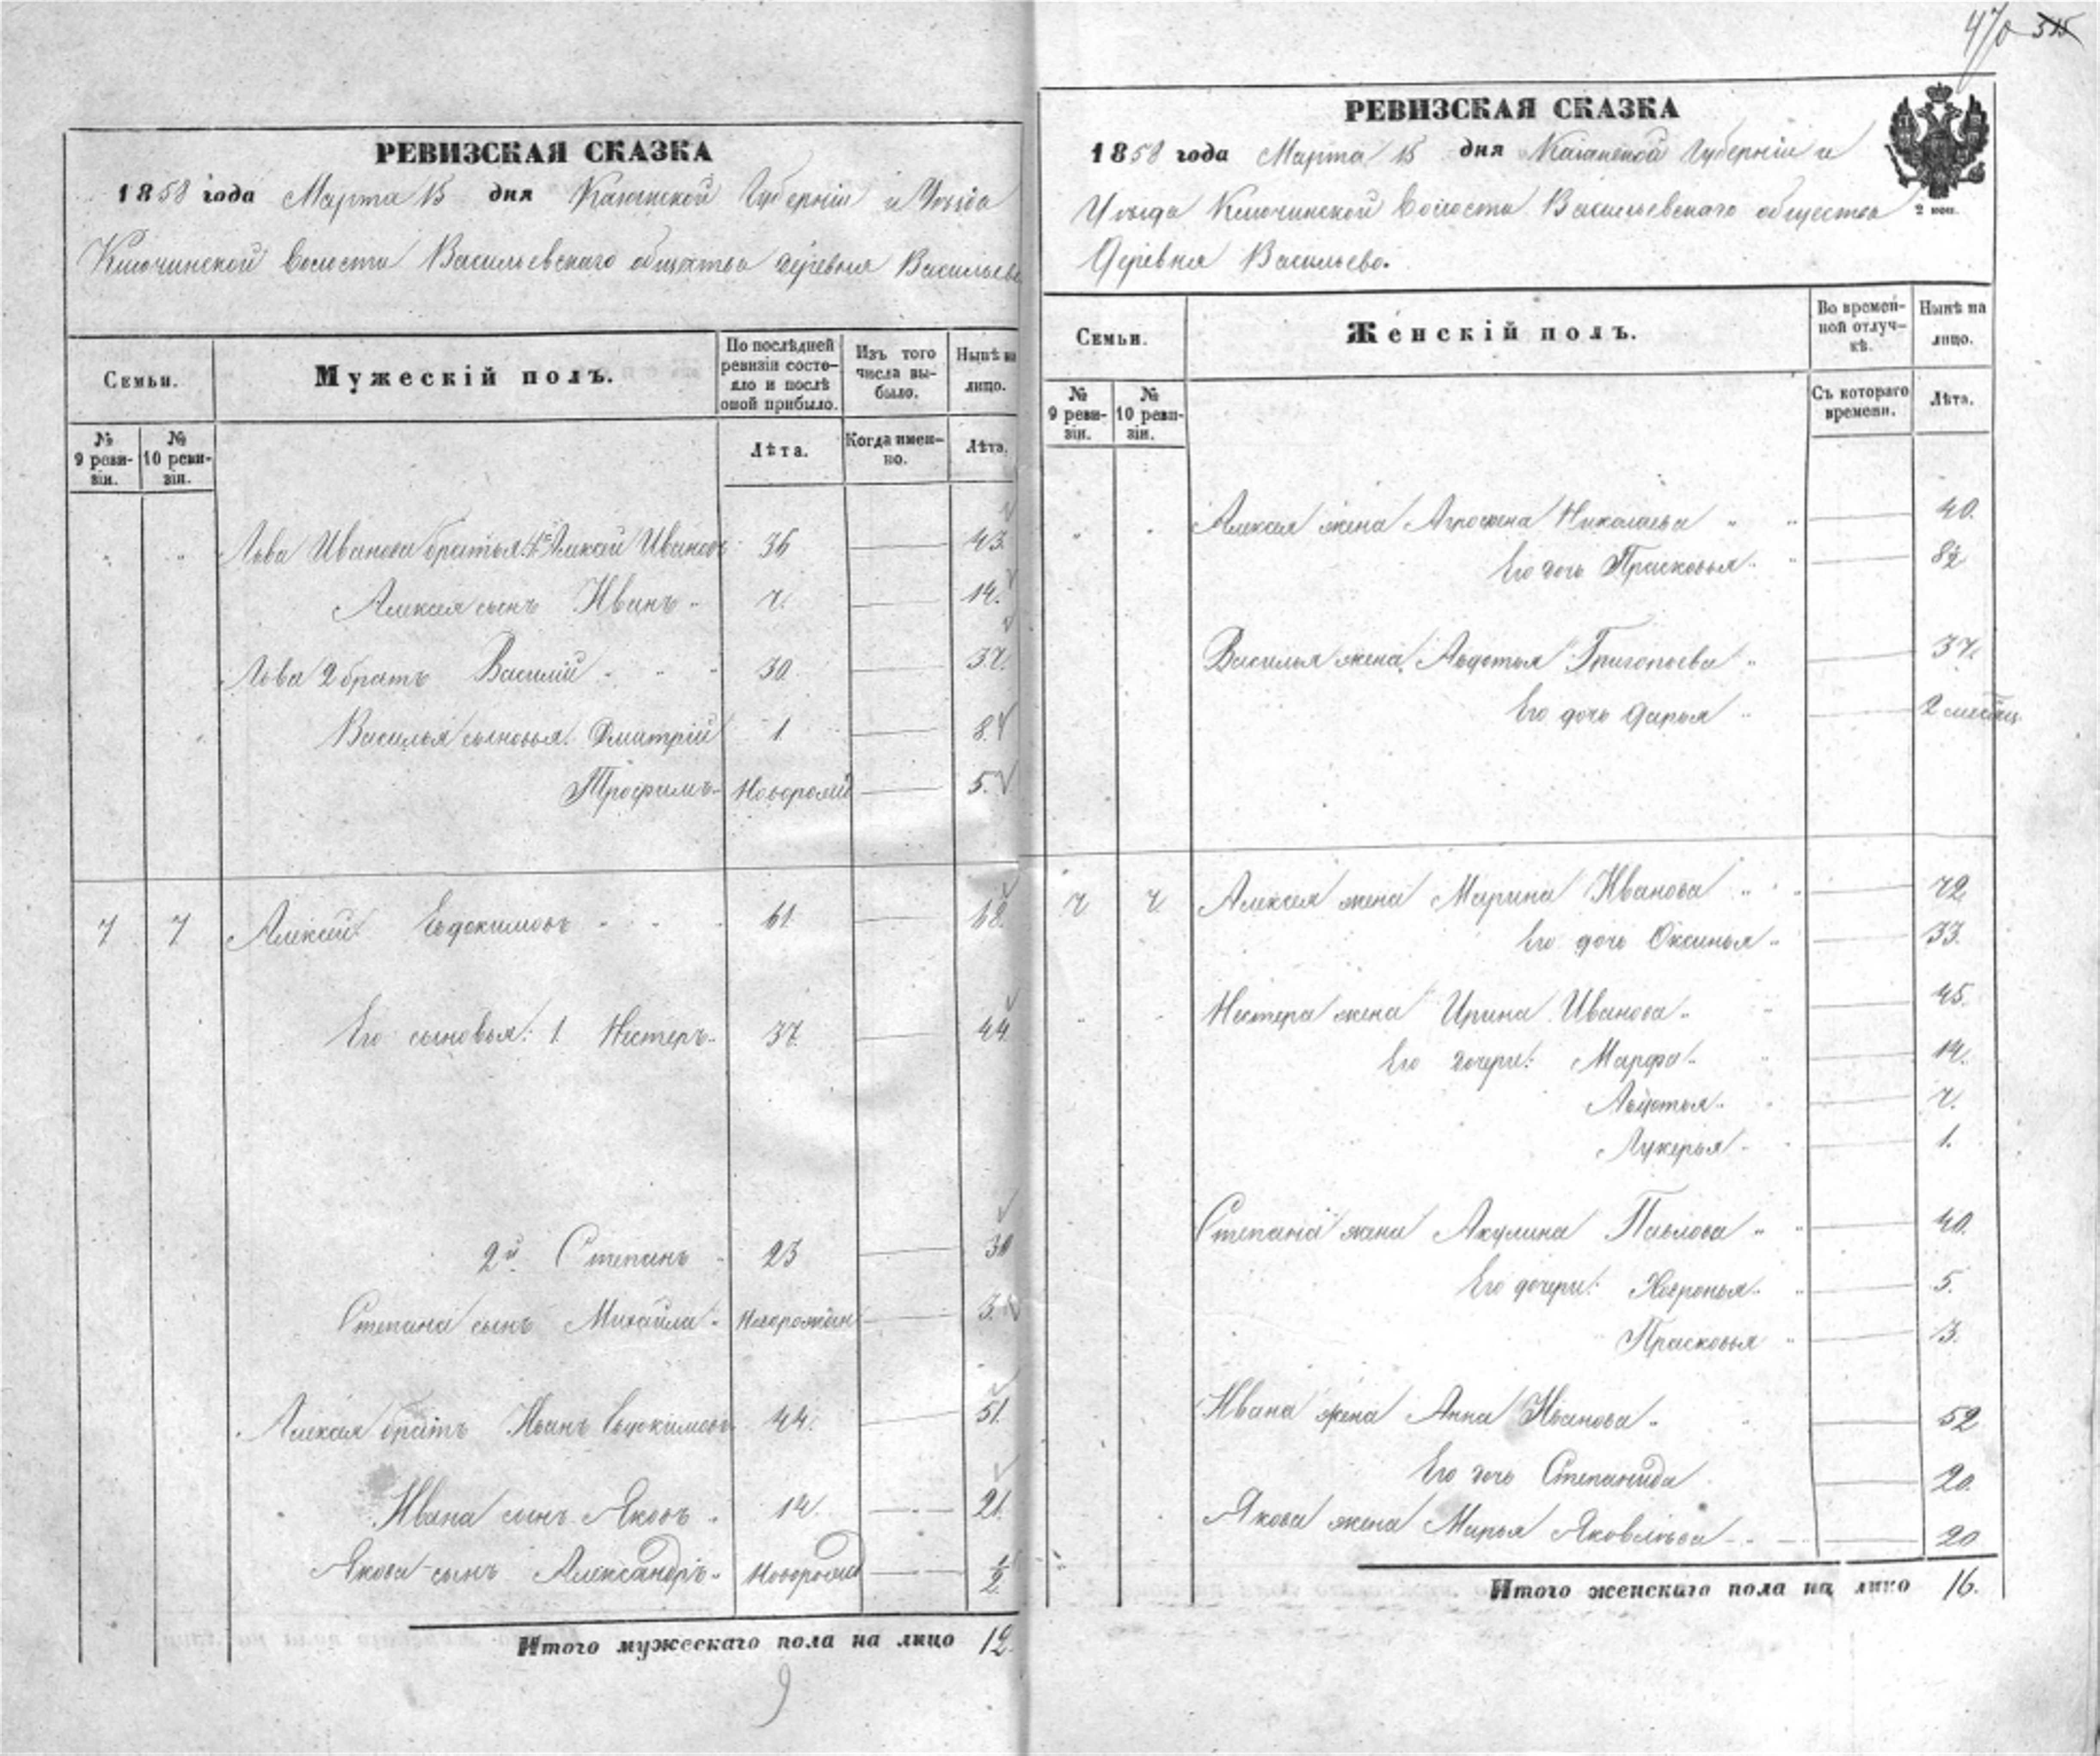 470 315
РЕВИЗСКАЯ СКАЗКА
1858 года Марта 15 дня Казанской Губерніи и Уезда
Ключинской Волости Васильевскаго общества деревня Васильево
Семьи.
Мужескій полъ.
По послѣдней ревизіи состояло и послѣ оной прибыло.
Изъ того числа выбыло.
Нынѣ на лицо.
№ 9 ревизіи.
№ 10 ревизіи.
Лѣта.
Когда именно.
Лѣта.
" " Льва Иванова братья: 1й Алексей Ивановъ 36 — 43.
Алексея сынъ Иванъ " 7. — 14.
Льва 2 братъ Василій " " " 30. — 37.
Василья сыновья: Дмитрій 1 — 8.
Трофимъ " Новорожд — 5.
7 7 Алексей Евдокимовъ " " " 61. — 68.
Его сыновья: 1. Нестеръ " 37. — 44.
2й Степанъ " 23 — 30
Степана сынъ Михайла " Новорожден — 3.
Алексея братъ Иванъ Евдокимовъ 44. — 51.
Ивана сынъ Яковъ " 14. — 21.
Якова сынъ Александръ " Новорожд — 1/2
Итого мужескаго пола на лицо 12.
РЕВИЗСКАЯ СКАЗКА
1858 года Марта 15 дня Казанской Губерніи и
Уезда Ключинской Волости Васильевскаго общества
Деревня Васильево.
2 коп.
Семьи.
Женскій полъ.
Во временной отлучкѣ.
Нынѣ на лицо.
№ 9 ревизіи.
№ 10 ревизіи.
Съ котораго времени.
Лѣта.
" " Алексея жена Агрофена Николаева " " — 40.
Его дочь Прасковья " " — 8½
Василья жена Авдотья Григорьева " — 37.
Его дочь Дарья " — 2 месяц
7 7 Алексея жена Марина Иванова " " " — 72.
Его дочь Оксинья " — 33.
" " Нестера жена Ирина Иванова " " — 45.
Его дочери: Марфа " " — 14.
Авдотья " " — 7.
Лукерья " " — 1.
Степана жена Акулина Павлова " " — 40.
Его дочери: Хавронья " " — 5.
Прасковья " — 3.
Ивана жена Анна Иванова " " — 52
Его дочь Степанида — 20.
Якова жена Марья Яковлева " — 20
Итого женскаго пола на лицо 16.